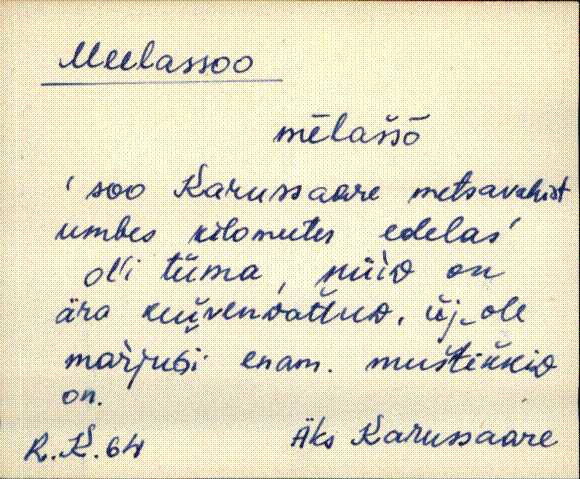 Meelassoo
mēlaššō
' soo Karussaare metsavahist
umbes kilomeeter edelas'
ol'i tüma, nüid on
ära kuivendattud, üj_ole
marjubi enam. mustikkid
on.
R.K. 64 Äks Karussaare